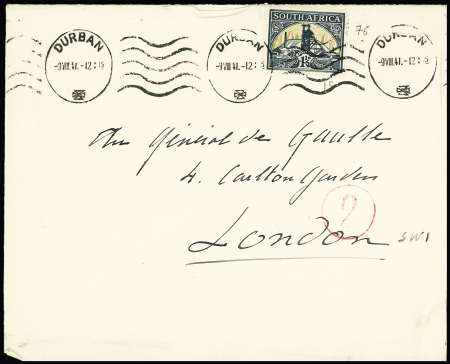 DURBAN
-9VIII.41.-12:15
DURBAN
-9VIII.41.-12:15
SOUTH AFRICA
1½
76
DURBAN
-9VIII.41.-12:15
Général de Gaulle
4. Carlton Gardens
London
SW1